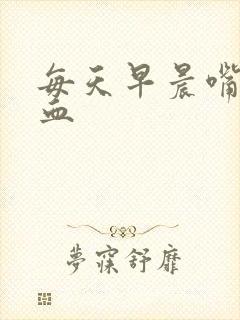 每天早晨嘴
血
夢寐舒靡